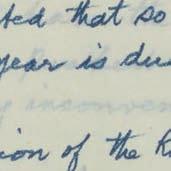 ted that so
year is du
inconven
ion of the